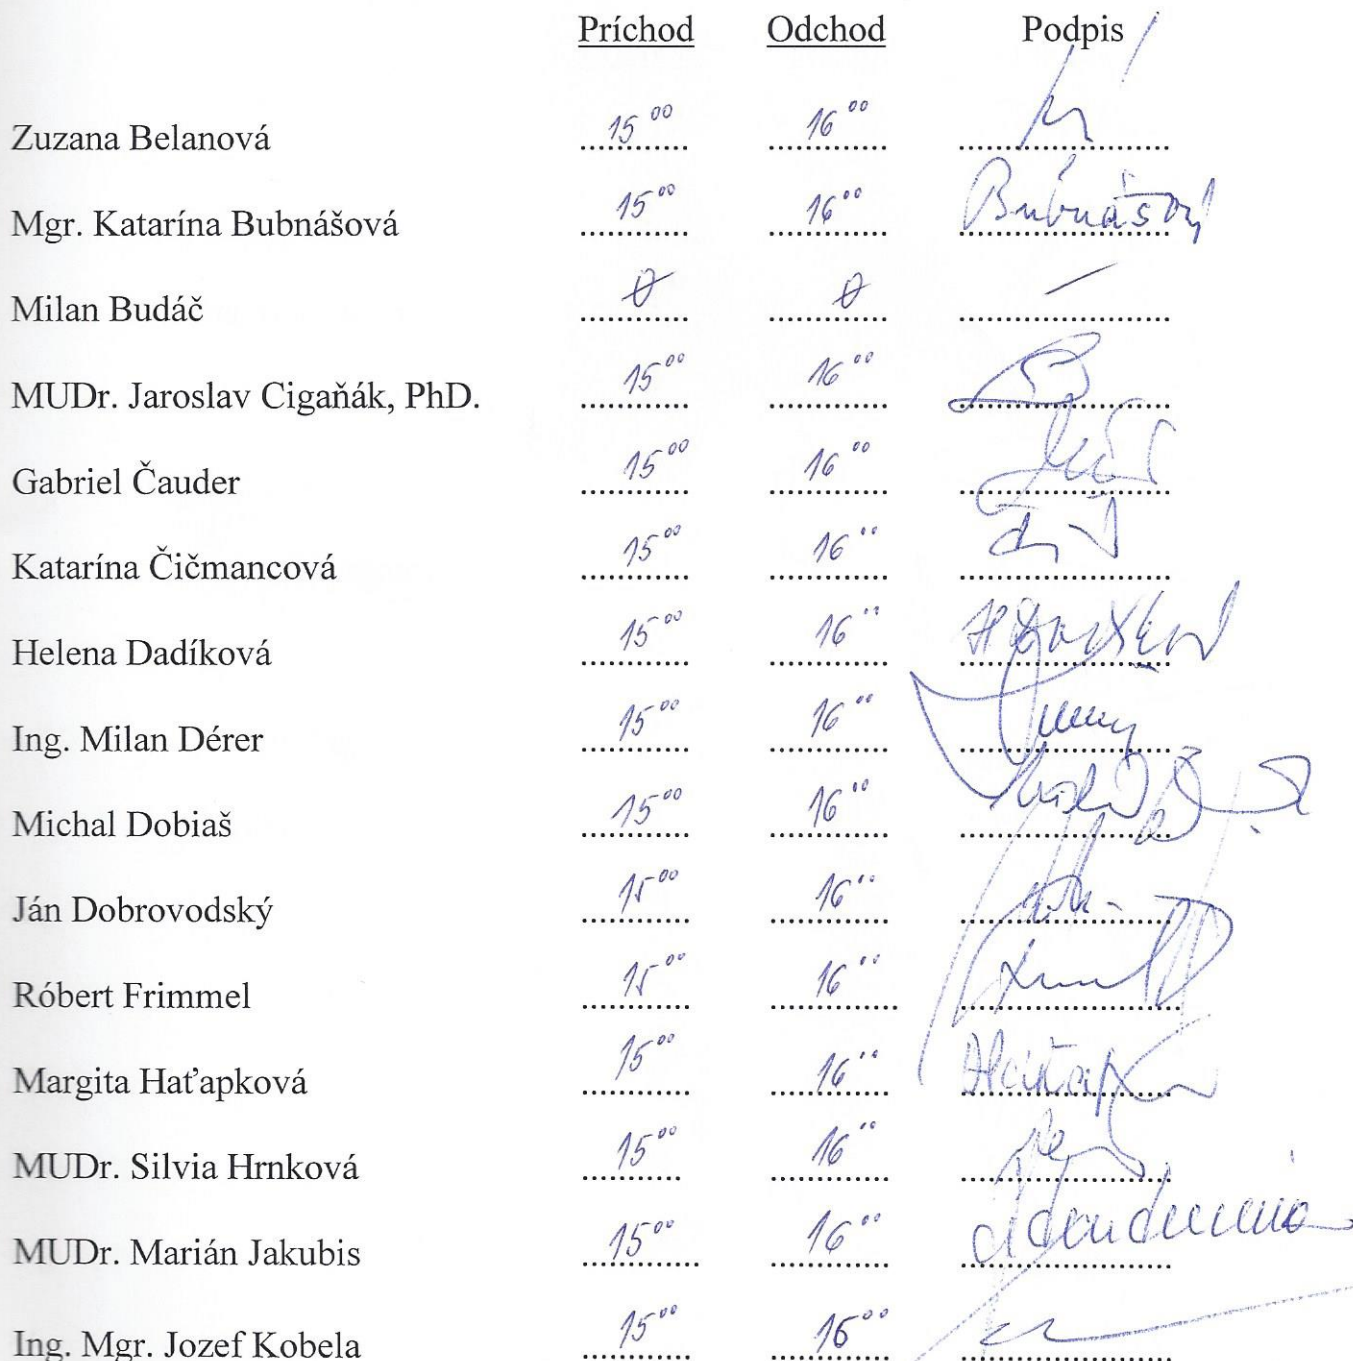 Príchod Odchod Podpis
Zuzana Belanová 15 00 16 00
Mgr. Katarína Bubnášová 15 00 16 00 Bubnášová
Milan Budáč 0 0 –
MUDr. Jaroslav Cigaňák, PhD. 15 00 16 00
Gabriel Čauder 15 00 16 00
Katarína Čičmancová 15 00 16 00
Helena Dadíková 15 00 16 00
Ing. Milan Dérer 15 00 16 00
Michal Dobiaš 15 00 16 00
Ján Dobrovodský 15 00 16 00
Róbert Frimmel 15 00 16 00
Margita Haťapková 15 00 16 00
MUDr. Silvia Hrnková 15 00 16 00
MUDr. Marián Jakubis 15 00 16 00
Ing. Mgr. Jozef Kobela 15 00 16 00